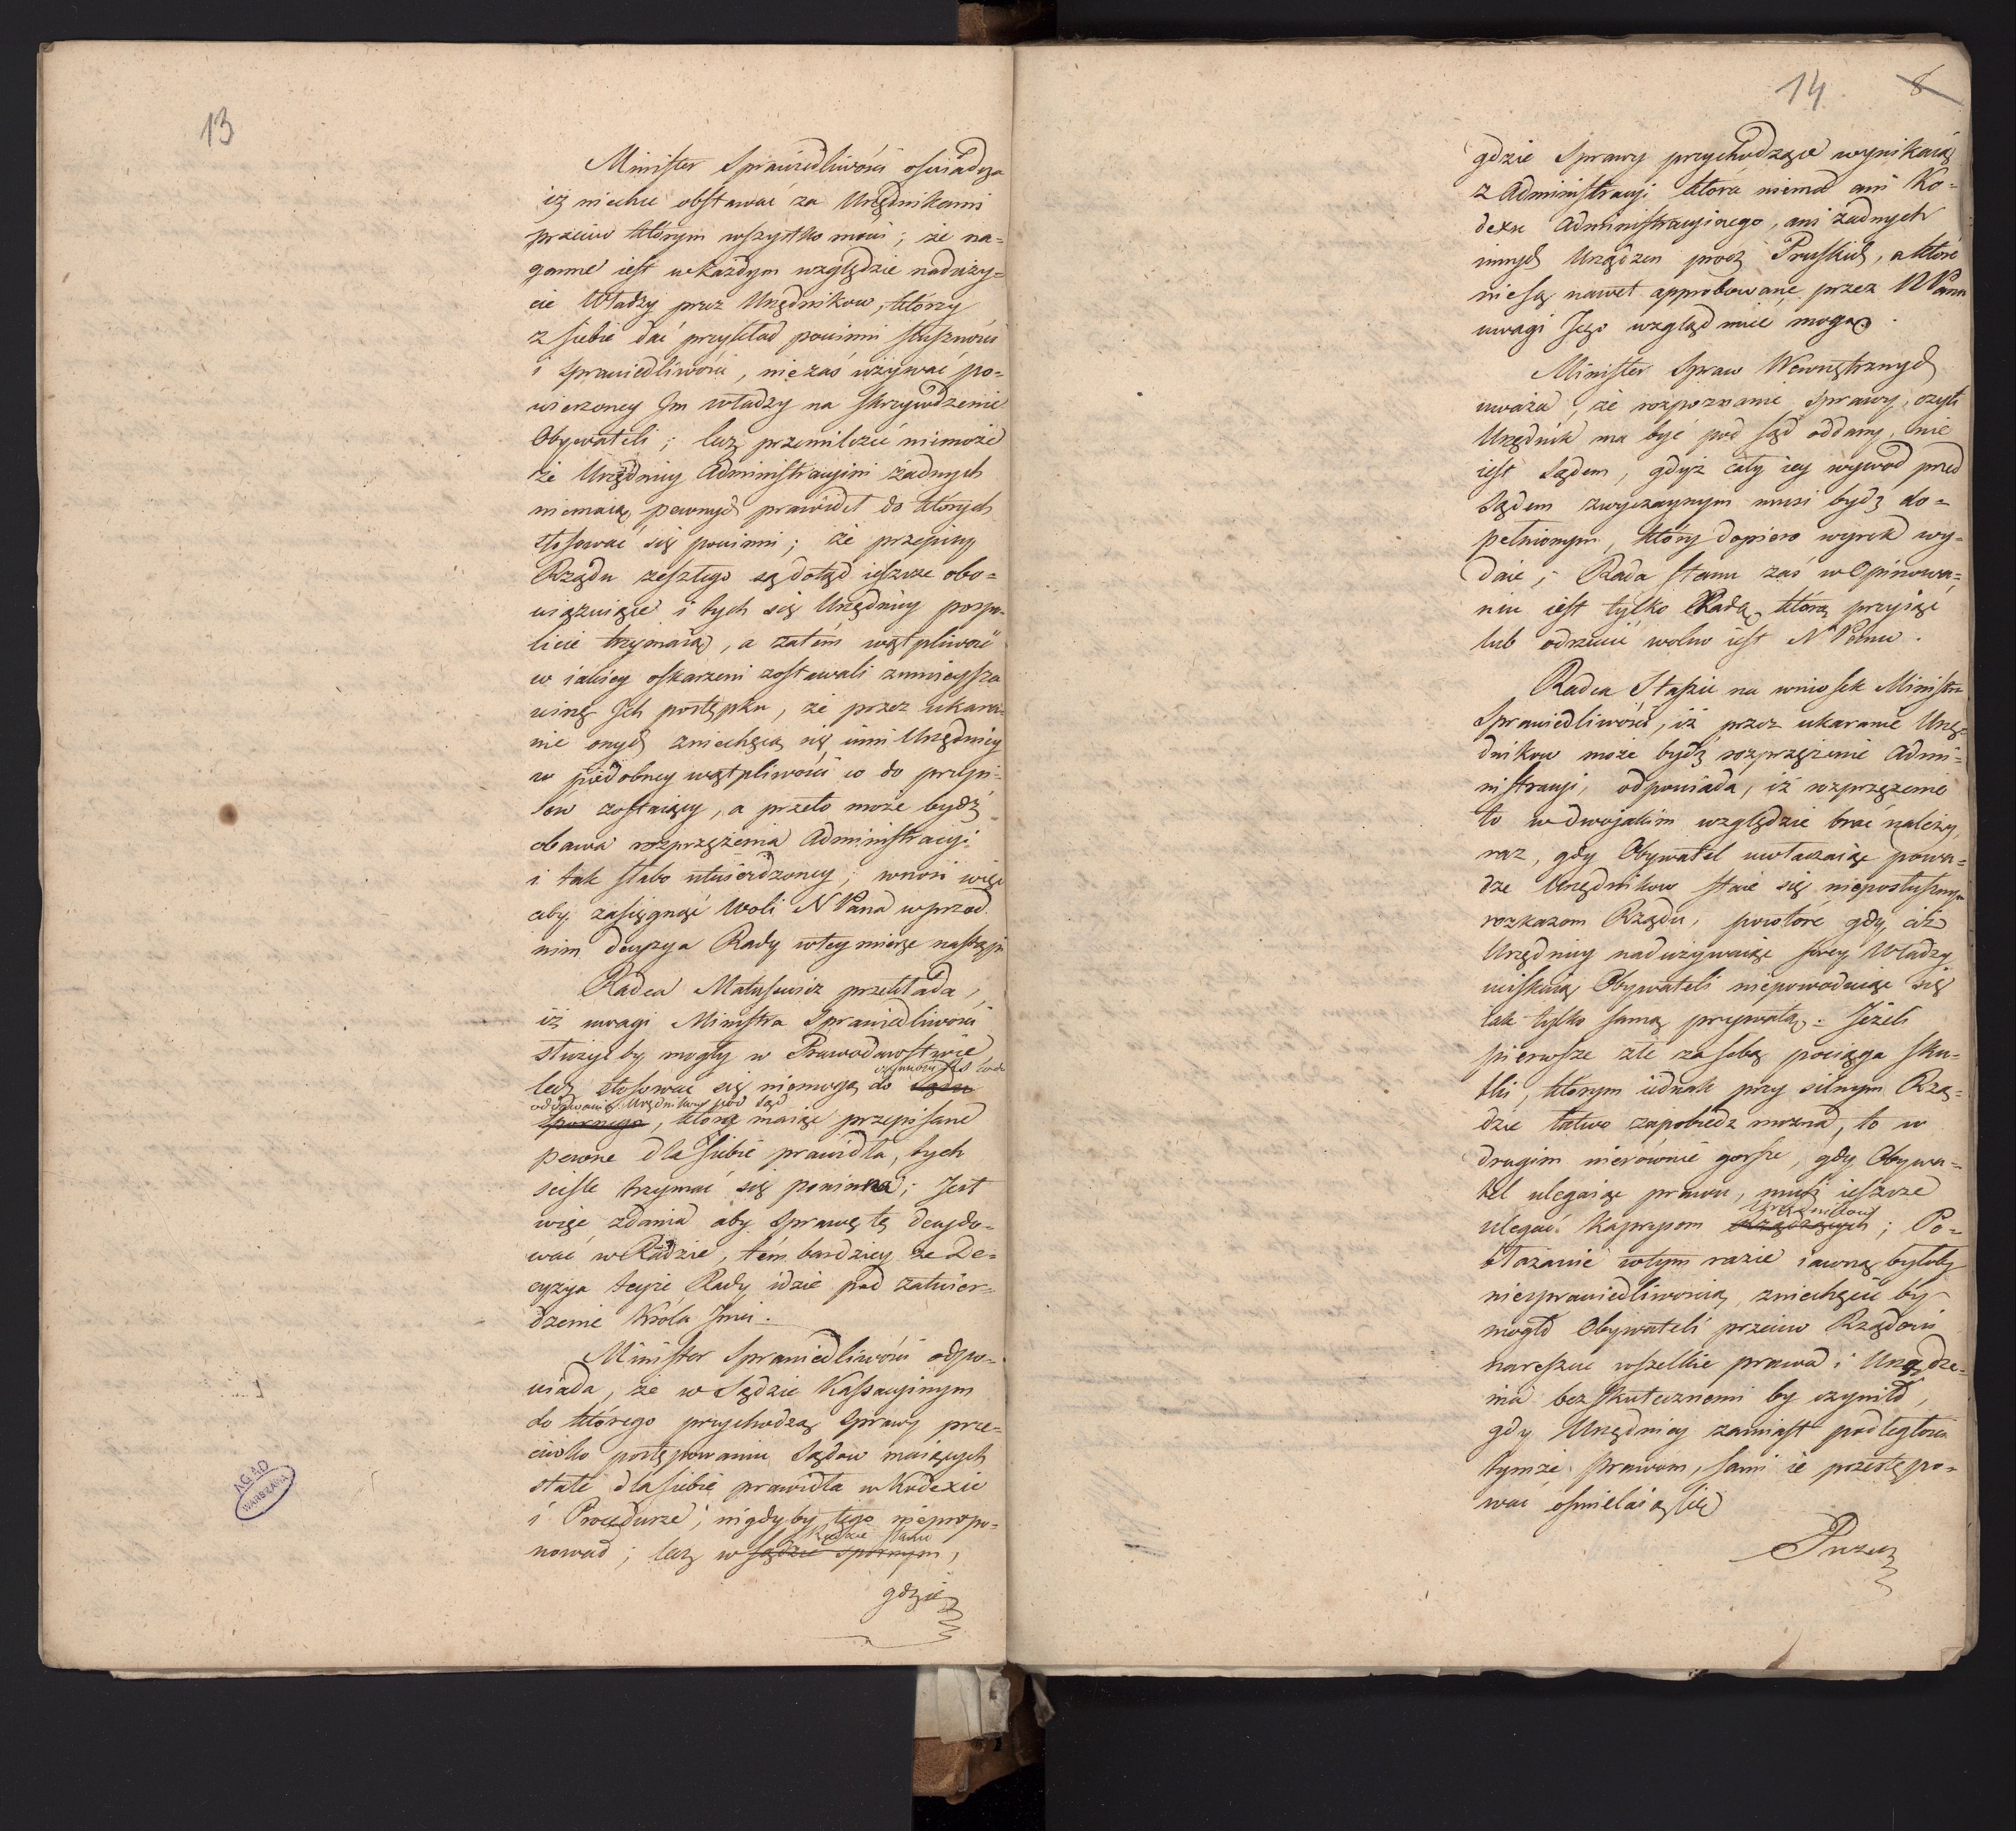 13
Minister Sprawiedliwości oświadcza
iż niechce obstawać za Urzędnikami
przeciw którym wszystko mówi; że na=
ganne iest wkażdym względzie nadużÿ=
cie Władzy przez Urzędnikow, którzy
z siebie dać przykład powinni słuszności
i sprawiedliwości, niezaś używać po=
wierzoney Im władzy na skrzywdzenie
Obywateli; lecz przemilczeć niemoże
że Urzędnicy Administracyini żadnych
niemaią pewnych prawideł do których
stosować się powinni; że przepisy
Rządu zeszłego są dotąd ieszcze obo=
wiązuiące i tych się Urzędnicy pospo=
licie trzymaią, a zatém wątpliwość
w iakiey oskarzeni zostawali zmnieysza
winę Ich postępku, że przez ukara=
nie onych zniechęcą się inni Urzędnicy
w podobney wątpliwości co do przepi=
sów zostaiący, a przeto może bydź
obawa rozprzężenia Administracyi
i tak słabo utwierdzoney; wnosi więc
aby zasięgnąć Woli N Pana wprzod
nim decyzya Rady wtey mierze nastąpi
Radca Matusewicz przekłada,
iż uwagi Ministra Sprawiedliwości
służyć by mogły w Prawodawstwie
lecz stosować się niemogą do Sądu
oddawania Urzędnikow pod Sąd
spornego, które maiąc przepisane
pewne dla siebie prawidła, tych
sciśle trzymać się powinna; Jest
więc zdania aby sprawę tę decydo=
wać w Radzie, tém bardziey że De=
cyzya teyże Rady idzie pod zatwier=
dzenie Króla Jmci.
Minister Sprawiedliwości odpo=
wiada, że w Sądzie Kassacyinym
do którego przychodzą sprawy prze=
ciwko postępowaniu Sądow maiących
stałe dla siebie prawidła w Kodexie
i Procedurze, nigdyby tego niepropo=
Radzie Stanu
nował; lecz w sądzie spornym,
gdzie
AGAD
WARSZAWA
14
8
gdzie Sprawy przychodzące wynikaią
z Administracyi która niema ani Ko=
dexu Administracyinego, ani żadnych
innych Urządzen procz Pruskich, a które
niesą nawet approbowane przez N Pana
uwagi Jego wzgląd mieć mogą.
Minister Spraw Wewnętrznych
uważa, że rozpoznanie sprawy, czyli
Urzędnik ma być pod sąd oddany, nie
iest Sądem, gdyż cały iey wywod przed
Sądem zwyczaynym musi bydź do=
pełnionym, który dopiero wyrok wy=
daie; Rada Stanu zaś w Opinowa=
niu iest tylko Radą, którą przyiąć
lub odrzucić wolno iest N Panu.
Radca Staszic na wniosek Ministra
Sprawiedliwości, iż przez ukaranie Urzę=
dnikow może bydź rozprzężenie Admi=
nistracyi, odpowiada, iż rozprzężenie
to wdwojakim względzie brać należy,
raz, gdy Obywatel uwłaczaiąc powa=
dze Urzędnikow staie się nieposłusznym
rozkazom Rządu, powtóre gdy ciż
Urzędnicy nadużywaiąc swey Władzy
uciskaią Obywateli niepowoduiąc się
iak tylko samą prywatą. Jeżeli
pierwsze złe za sobą pociąga sku=
tki, którym iednak przy silnym Rzą=
dzie łatwo zapobiedz można, to w
drugim nierównie gorsze, gdy Obywa=
tel ulegaiąc prawu, musi ieszcze
Urzędnikow
ulegać kaprysom rządzących; Po=
błażanie wtym razie iawną byłoby
niesprawiedliwością, zniechęcić by
mogło Obywateli przeciw Rządowi
nareszcie wszelkie prawa i Urządze=
nia bezskutecznemi by czyniło,
gdy Urzędnicy zamiast podległości
tymże prawom, sami ie przestępo=
wać ośmielaią się